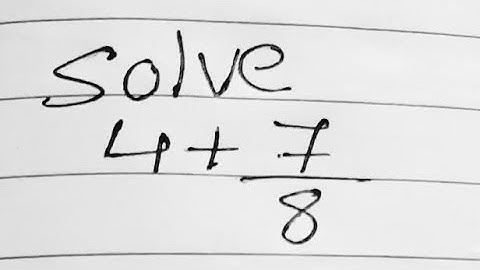 Solve
4 + 7/8